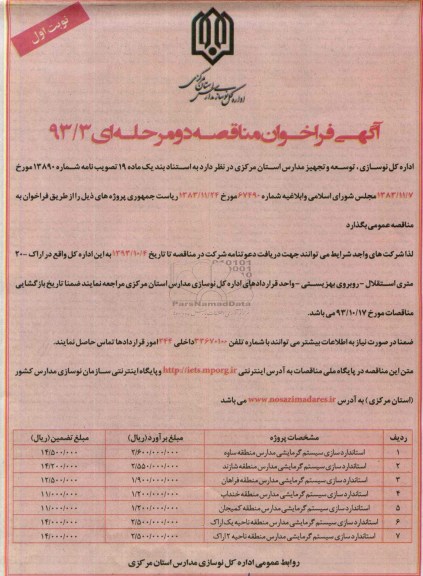 نوبت اول
اداره کل نوسازی مدارس استان مرکزی
آگهی فراخوان مناقصه دو مرحله ای ۹۳/۳
اداره کل نوسازی، توسعه و تجهیز مدارس استان مرکزی در نظر دارد به استناد بند یک ماده ۱۹ تصویب نامه شماره ۱۳۸۹۰ مورخ
۱۳۸۳/۱۱/۷ مجلس شورای اسلامی وابلاغیه شماره ۶۷۴۹۰ مورخ ۱۳۸۳/۱۱/۲۴ ریاست جمهوری پروژه های ذیل را از طریق فراخوان به
مناقصه عمومی بگذارد
لذا شرکت های واجد شرایط می توانند جهت دریافت دعوتنامه شرکت در مناقصه تا تاریخ ۱۳۹۳/۱۰/۴ به این اداره کل واقع در اراک -۲۰
متری استقلال - روبروی بهزیستی - واحد قراردادهای اداره کل نوسازی مدارس استان مرکزی مراجعه نمایند ضمنا تاریخ بازگشایی
مناقصات مورخ ۹۳/۱۰/۱۷ می باشد.
ضمنا در صورت نیاز به اطلاعات بیشتر می توانند با شماره تلفن ۳۳۶۷۰۱۰۰ داخلی ۲۴۴ امور قراردادها تماس حاصل نمایند.
متن این مناقصه در پایگاه ملی مناقصات به آدرس اینترنتی http://iets.mporg.ir و پایگاه اینترنتی سازمان نوسازی مدارس کشور
(استان مرکزی) به آدرس www.nosazimadares.ir می باشد
ردیف مشخصات پروژه مبلغ برآورد (ریال) مبلغ تضمین (ریال)
۱ استانداردسازی سیستم گرمایشی مدارس منطقه ساوه ۲/۶۰۰/۰۰۰/۰۰۰ ۱۴/۵۰۰/۰۰۰
۲ استانداردسازی سیستم گرمایشی مدارس منطقه شازند ۲/۵۵۰/۰۰۰/۰۰۰ ۱۴/۲۰۰/۰۰۰
۳ استانداردسازی سیستم گرمایشی مدارس منطقه فراهان ۱/۹۰۰/۰۰۰/۰۰۰ ۱۲/۵۰۰/۰۰۰
۴ استانداردسازی سیستم گرمایشی مدارس منطقه خنداب ۱/۲۰۰/۰۰۰/۰۰۰ ۱۱/۰۰۰/۰۰۰
۵ استانداردسازی سیستم گرمایشی مدارس منطقه کمیجان ۱/۲۰۰/۰۰۰/۰۰۰ ۱۱/۰۰۰/۰۰۰
۶ استانداردسازی سیستم گرمایشی مدارس منطقه ناحیه یک اراک ۲/۵۰۰/۰۰۰/۰۰۰ ۱۴/۰۰۰/۰۰۰
۷ استانداردسازی سیستم گرمایشی مدارس منطقه ناحیه ۲ اراک ۲/۵۰۰/۰۰۰/۰۰۰ ۱۴/۰۰۰/۰۰۰
روابط عمومی اداره کل نوسازی مدارس استان مرکزی
ParsNamadData